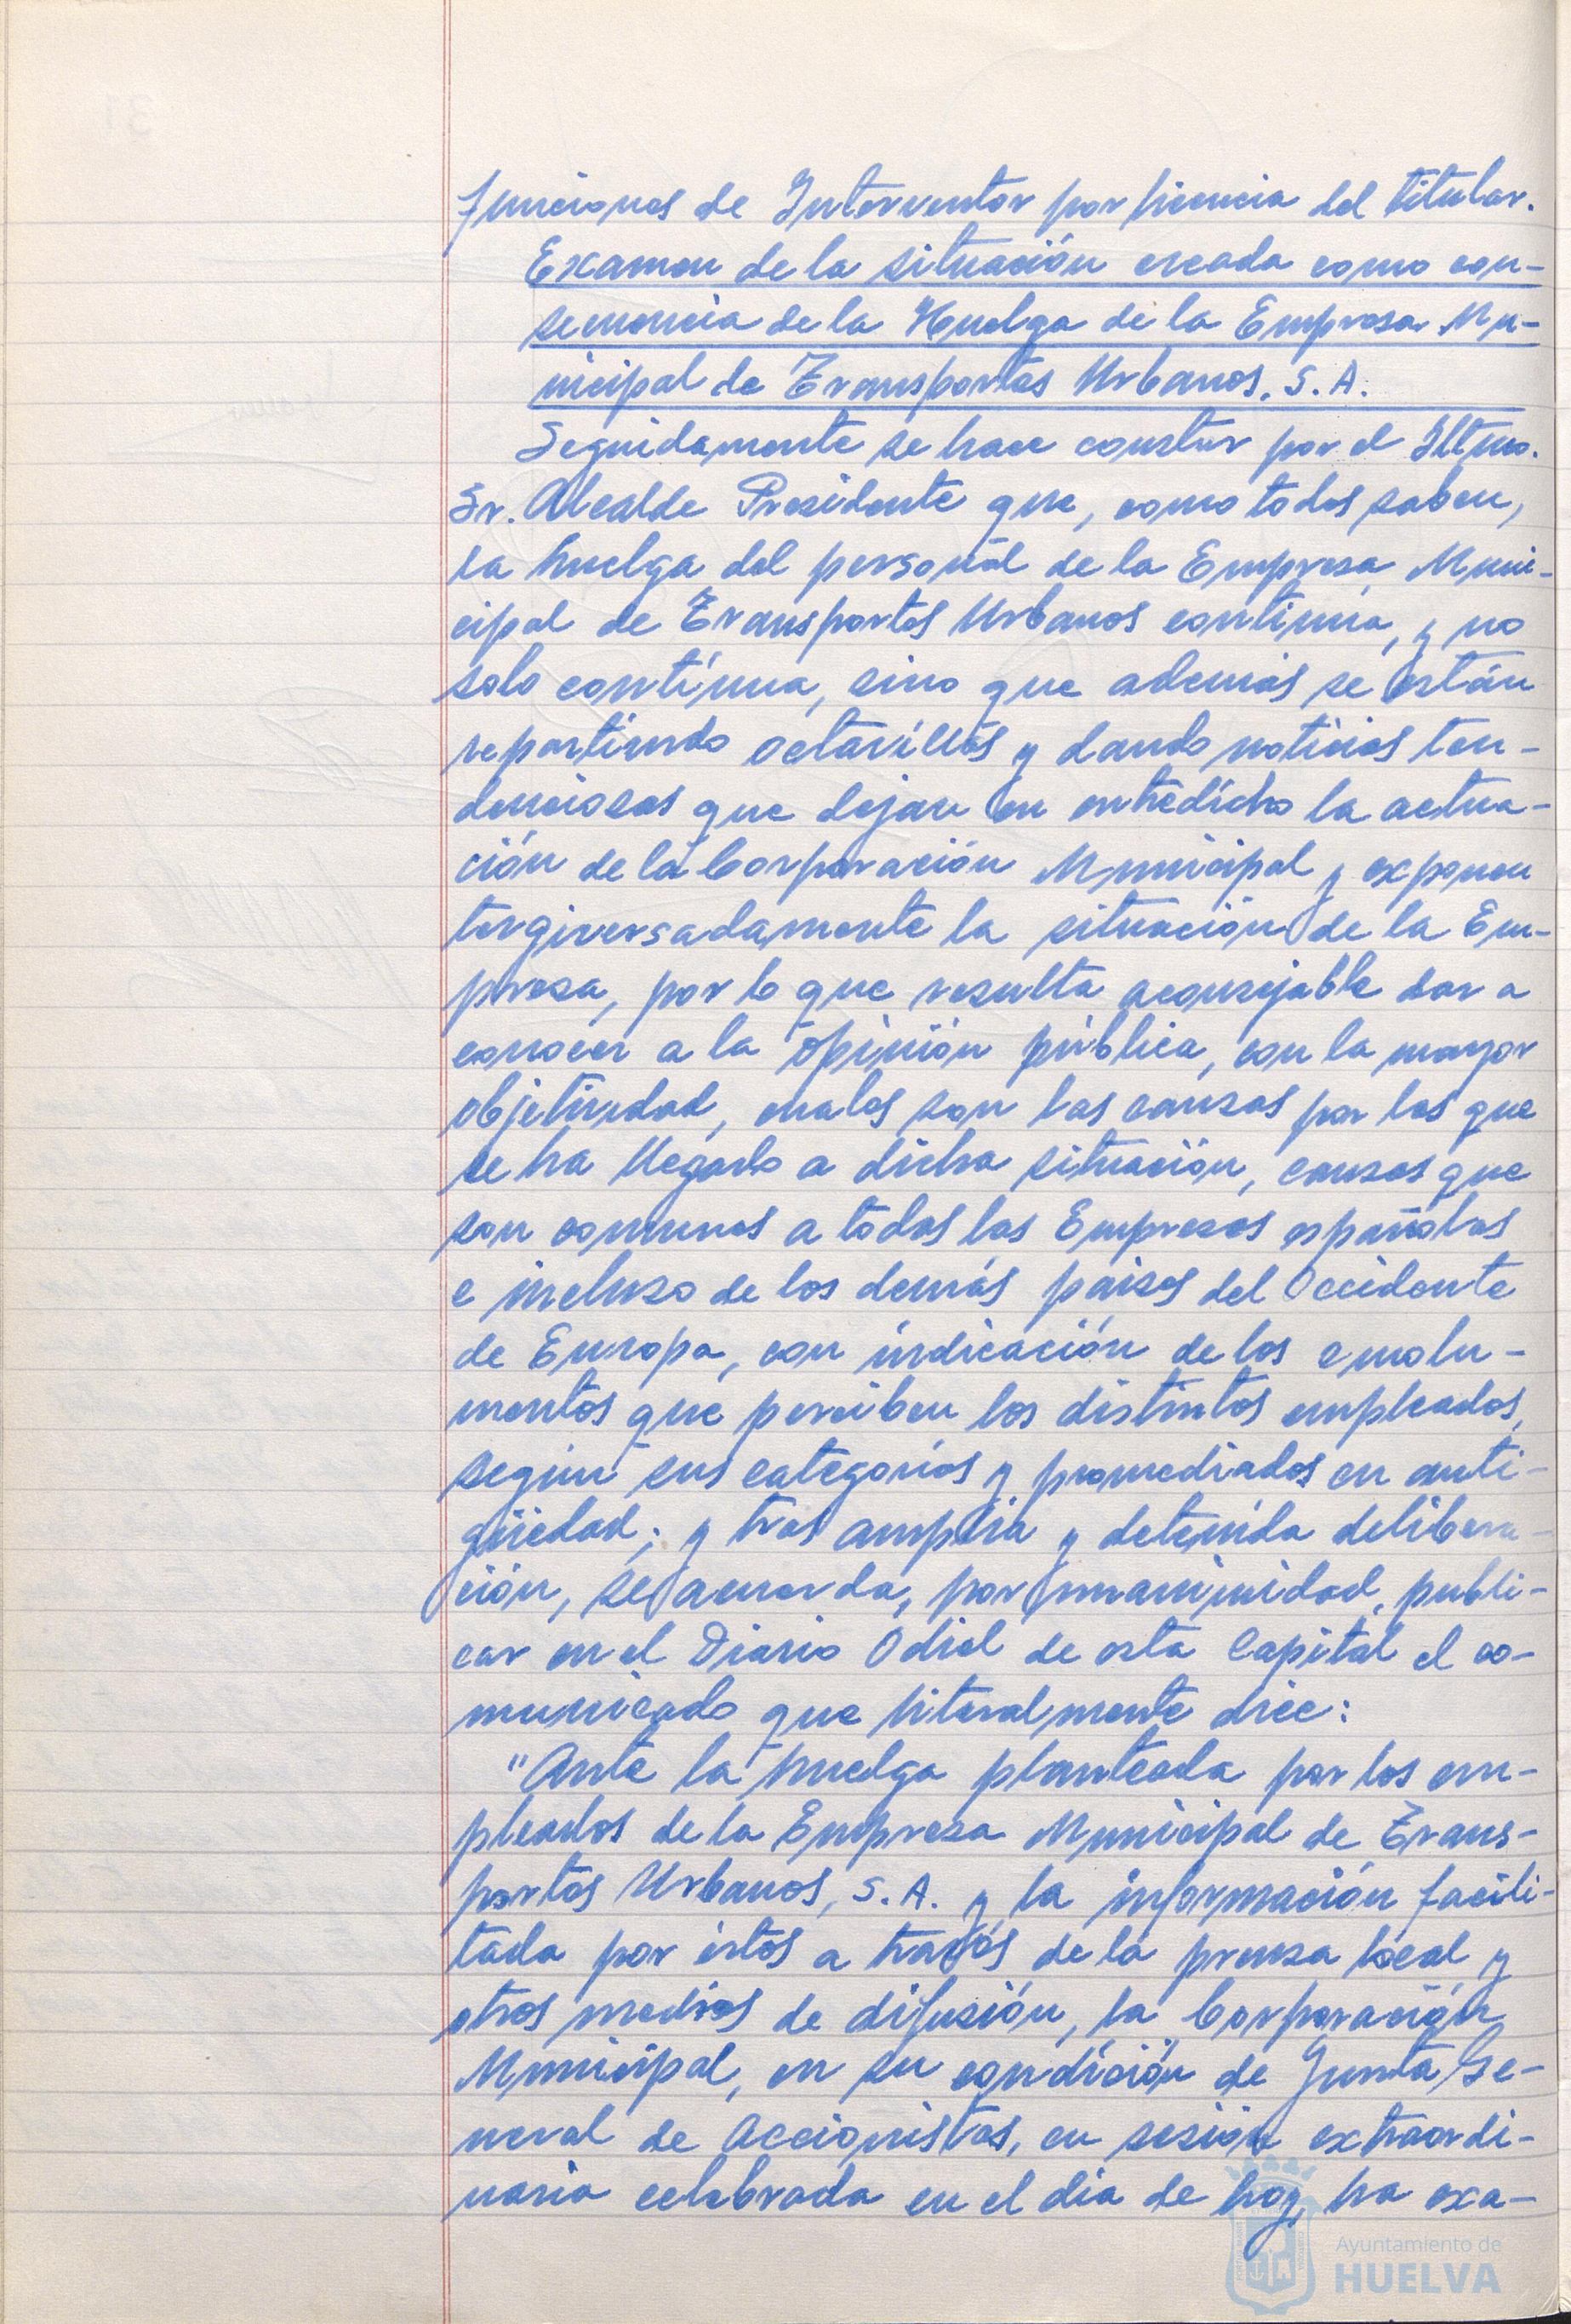 funciones de Interventor por licencia del titular.
Examen de la situación creada como con-
secuencia de la Huelga de la Empresa Mu-
nicipal de Transportes Urbanos, S. A.
Seguidamente se hace constar por el Iltmo.
Sr. Alcalde Presidente que, como todos saben,
la huelga del personal de la Empresa Muni-
cipal de Transportes Urbanos continúa, y no
solo contínua, sino que además se están
repartiendo octavillas y dando noticias ten-
denciosas que dejan en entredicho la actua-
ción de la Corporación Municipal y exponen
tergiversadamente la situación de la Em-
presa, por lo que resulta aconsejable dar a
conocer a la opinión pública, con la mayor
objetividad, cuales son las causas por las que
se ha llegado a dicha situación, causas que
son comunes a todas las Empresas españolas
e incluso de los demás paises del Occidente
de Europa, con indicación de los emolu-
mentos que perciben los distintos empleados,
según sus categorías y promediados en anti-
güedad; y tras amplia y detenida delibera-
ción, se acuerda, por unanimidad, publi-
car en el Diario Odiel de esta Capital el co-
municado que literalmente dice:
"Ante la huelga planteada por los em-
pleados de la Empresa Municipal de Trans-
portes Urbanos, S. A. y la información facili-
tada por éstos a través de la prensa local y
otros medios de difusión, la Corporación
Municipal, en su condición de Junta Ge-
neral de Accionistas, en sesión extraordi-
naria celebrada en el día de hoy, ha exa-
Ayuntamiento de
HUELVA